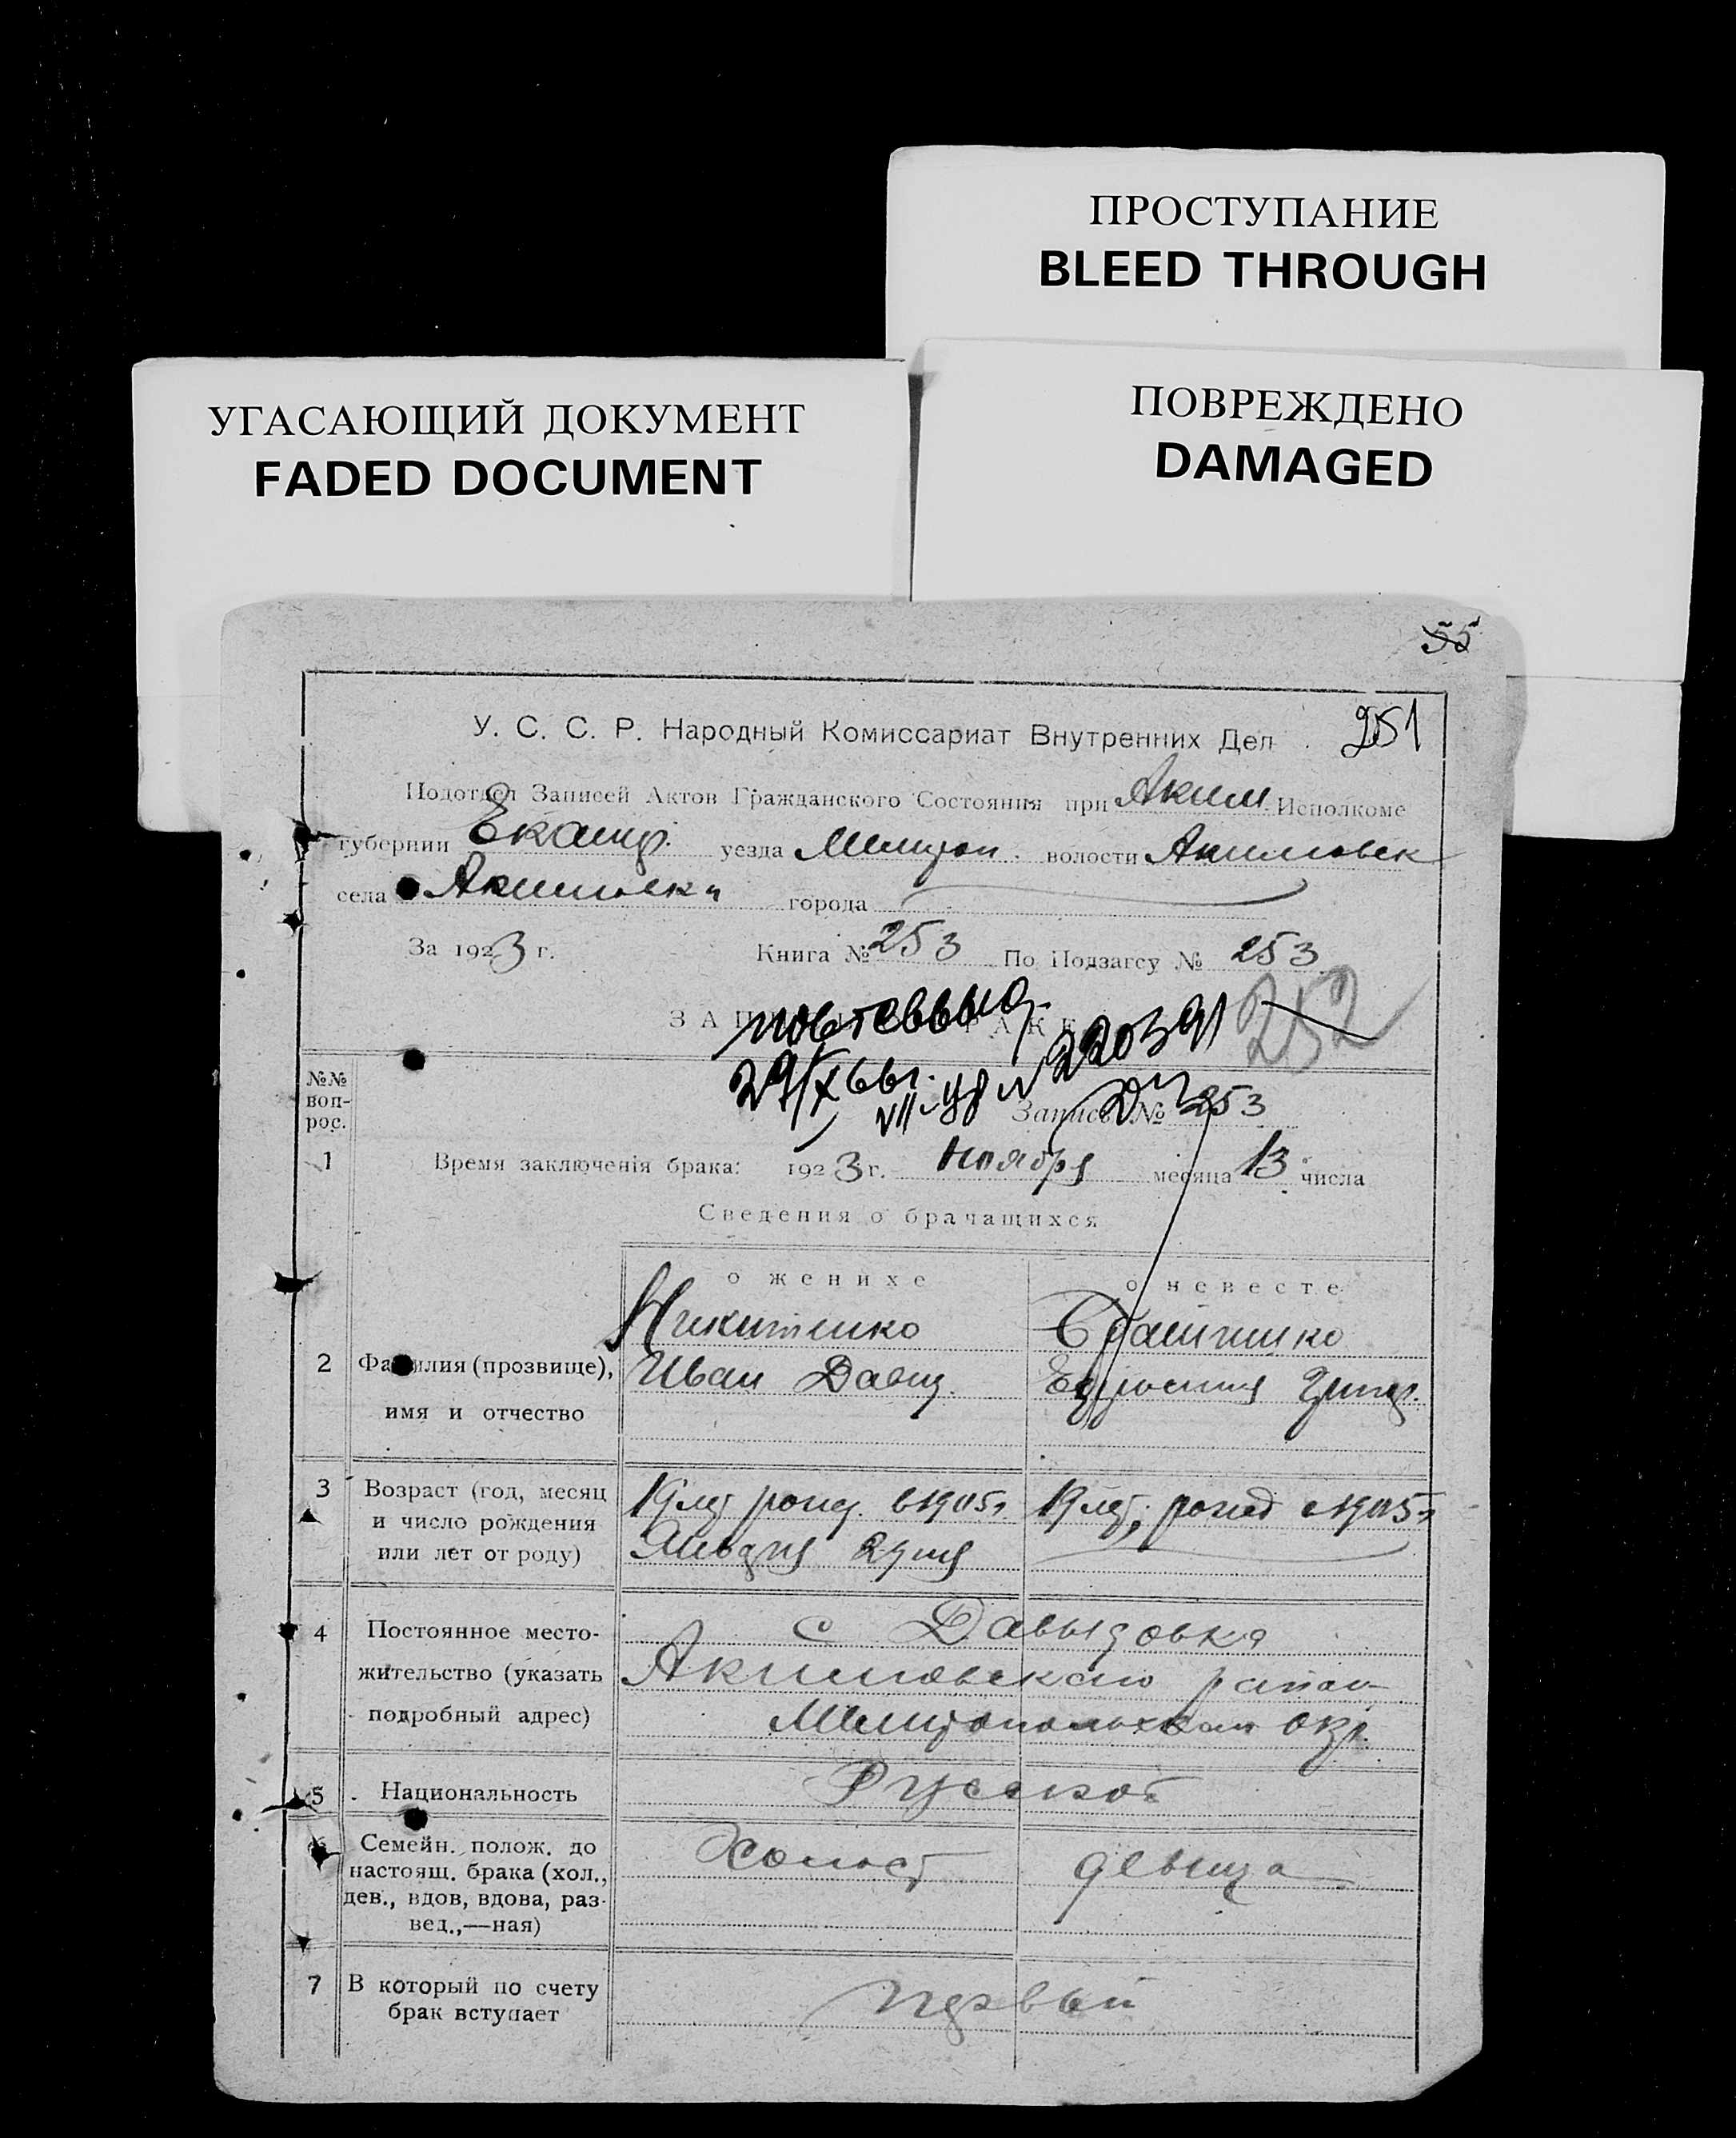 ПРОСТУПАНИЕ
BLEED THROUGH
УГАСАЮЩИЙ ДОКУМЕНТ
FADED DOCUMENT
ПОВРЕЖДЕНО
DAMAGED
55
У. С. С. Р. Народный Комиссариат Внутренних Дел 251
Подотдел Записей Актов Гражданского Состояния при Аким Исполкоме
губернии Екатер. уезда Мелитоп. волости Акимовск
села Акимовка города
За 1923 г. Книга № 253 По Подзагсу № 253
повт свид. 220391 252
29/X 66г.
Запись № 253
№№ вопрос.
1 Время заключенія брака: 1923 г. ноября месяца 13 числа
Сведения о брачащихся
о женихе о невесте
Никитенко
2 Фамилия (прозвище), Иван Давид. Ефросиния Григ.
имя и отчество
3 Возраст (год, месяц и число рождения или лет от роду) 19 лет рожд. в 1905 г 19 лет, рожд в 1905 г
Января 29 дня
4 Постоянное местожительство (указать подробный адрес) с Давыдовка
Акимовского район
Мелитопольская окр.
5 Национальность Русской
6 Семейн. полож. до настоящ. брака (хол., дев., вдов, вдова, развед.,—ная) Холост девица
7 В который по счету брак вступает первый